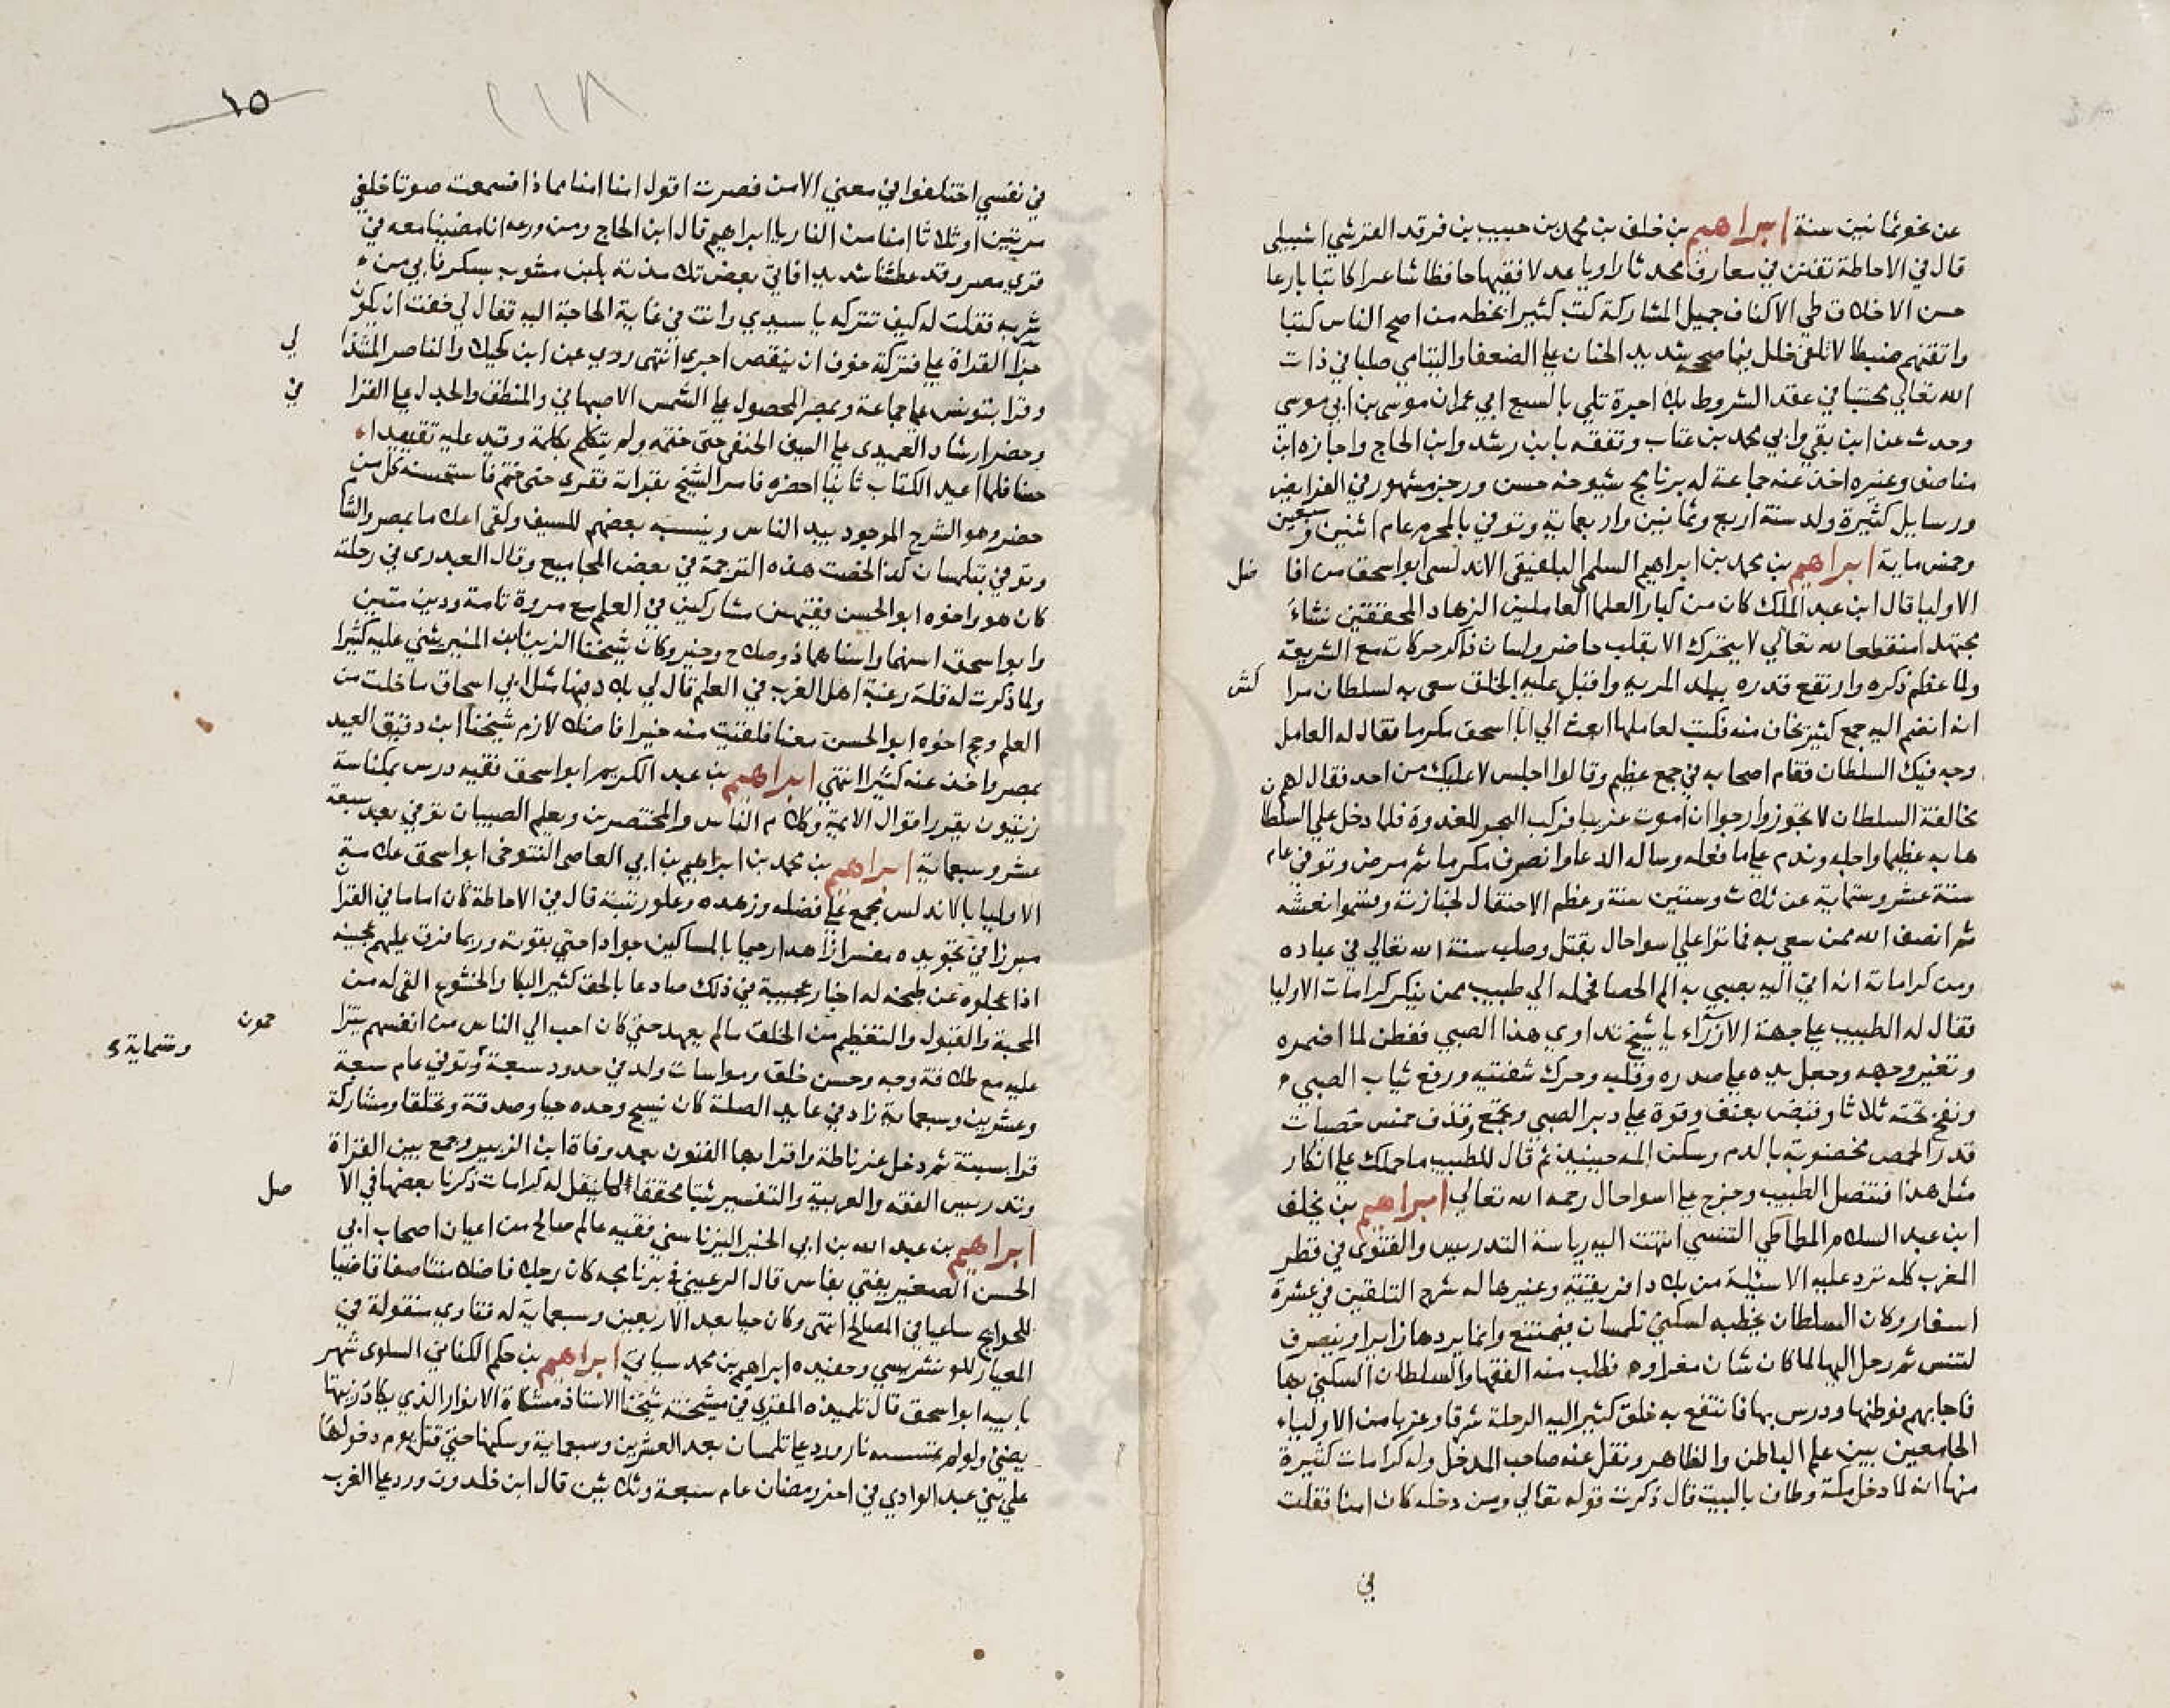 عن نحو ثمانين سنة ابراهيم بن خلف بن محمد بن حبيب بن فرقد القرشي اشبيلى
قال في الاحاطة تفنن في معارف محدثا راويا عدلا فقيها حافظا شاعرا كاتبا بارعا
حسن الاخلاق وطي الاكناف جميل المشاركة كتب كثيرا بخطه من اصح الناس كتبا
واتقنهم ضبطا لا تلفى خلل فيما صححه شديد الحنان على الضعفا واليتامي صلبا في ذات
الله تعالي محتبا في عقد الشروط بلا اجرة تلي بالسبع ابي عمران موسى بن ابي موسى
وحدث عن ابن بقي وابي محمد بن عتاب وتفقه بابن رشد وابن الحاج واجازه ابن
مناصف وغيره اخذ عنه جماعة له برنامج شيوخه حسن ورجز مشهور في الفرايض
ورسايل كثيرة ولد سنة اربع وثمانين واربعماية وتوفي بالمحرم عام اثنين وسبعين
وخمس ماية ابراهيم بن محمد بن ابراهيم السلمي البلفيقى الاندلسى ابو اسحق من افا ضل
الاوليا قال ابن عبد الملك كان من كبار العلما العاملين الزهاد المحققين نشاء
مجتهدا منقطعا لله تعالي لا يتحرك الا بقلب حاضر ولسان ذاكر حركاته مع الشريعة
ولما عظم ذكره وارتفع قدره ببلد المريه واقبل عليه الخلق سعى به لسلطان مرا كش
انه انضم اليه جمع كثير تخاف منه فكتب لعاملها ابعث الي ابا اسحق مكرما فقال له العامل
وجه فيك السلطان فقام اصحابه في جمع عظيم وقالوا اجلس لا عليك من احد فقال لهم
مخالفة السلطان لا تجوز وارجوا ان اموت غريبا فركب البحر للعدوة فلما دخل علي السلطا ن
هابه عظيما واجله وندم على ما فعله وساله الدعا وانصرف مكرما ثم مرض وتوفي عام
ستة عشر وستماية عن ثلاث وستين سنة وعظم الاحتفال لجنازته وقسموا نعشه
ثم انصف الله ممن سعي به فماتوا علي اسوا حال بقتل وصلب سنة الله تعالي في عباده
ومن كراماته انه اتي اليه بصبي به الم الحصا فحمله الي طبيب ممن ينكر كرامات الاوليا
فقال له الطبيب على جهة الازراء يا شيخ تداوي هذا الصبي ففطن لما اضمره
وتغير وجهه وجعل يده على صدره وقلبه وحرك شفتيه ورفع ثياب الصبي
ونفخ تحته ثلاثا وقبض بعنف وقوة على دبر الصبي وقذف خمس حصيات
قدر الحمص مخضوبة بالدم وسكن المه حينيذ ثم قال للطبيب ما حملك على انكار
مثل هذا فتنصل الطبيب وخرج على اسوا حال رحمه الله تعالي ابراهيم بن يخلف
ابن عبد السلام المطماطي التنسي انتهت اليه رياسة التدريس والفتوى في قطر
المغرب كله ترد عليه الاسئلة من بلاد افريقية وغيرها له شرح التلقين في عشرة
اسفار وكان السلطان يخطبه لسكنى تلمسان فيمتنع وانما يردها زايرا وينصرف
لتنس ثم رحل اليها لما كان شان مغراوه فطلب منه الفقها والسلطان السكنى بها
فاجابهم فوطنها ودرس بها فانتفع به خلق كثير اليه الرحلة شرقا وغربا من الاولياء
الجامعين بين علم الباطن والظاهر ونقل عنه صاحب المدخل وله كرامات كثيرة
منها انه لما دخل مكة وطاف بالبيت قال ذكرت قوله تعالي ومن دخله كان امنا فقلت
في
١٥
٢١٨
في نفسي اختلفوا في معني الامن فصرت اقول امنا امنا مما ذا فسمعت صوتا خلفي
مرتين او ثلاثا امنا من النار يا ابراهيم قال ابن الحاج ومن ورعه انا مضينا معه في
قرى مصر وقد عطشنا شديدا فاتى بعض تلامذته بلبن مشوب بسكر فابي من
شربه فقلت له كيف تتركه يا سيدي وانت في غاية الحاجة اليه فقال لي خفت ان يكون
القراة علي فتركته خوف ان ينقص اجرى انتهى روي عن ابن كحيلة والناصر المشذا لي
وقرا بتونس على جماعة وبمصر المحصول على الشمس الاصبهاني والمنطق والجدل على القرا في
وحضر ارشاد العميدى على السيف الحنفي حتى ختمه ولم يتكلم بكلمة وقيد عليه تقييدا
حسنا فلما اعيد الكتاب ثانيا احضره فامر الشيخ بقراته فقرى حتى ختم فاستحسنه كل من
حضر وهو الشرح الموجود بيد الناس وينسبه بعضهم للسيف ولقى اعلاما بمصر والشا م
وتوفي بتلمسان كذا لخصت هذه الترجمة في بعض المجاميع وقال العبدرى في رحلته
كان هو واخوه ابو الحسن فقيهين مشاركين في العلم مع مروة تامة ودين متين
وابو اسحق اسنهما واسناهما ذو صلاح وخير وكان شيخنا الزين ابن المنير يثني عليه كثيرا
ولما ذكرت له قلة رغبة اهل الغرب في العلم قال لي بلاد فيها مثل ابي اسحاق ما خلت من
العلم وحج اخوه ابو الحسن معنا فلقيت منه خيرا فاضلا لازم شيخنا ابن دقيق العيد
بمصر واخذ عنه كثيرا انتهى ابراهيم بن عبد الكريم ابو اسحق فقيه درس بمكناسة
زيتون يقرر اقوال الايمة وكلام الناس والمختصرين ويعلم الصبيان توفي بعد سبعة
عشر وسبعماية ابراهيم بن محمد بن ابراهيم بن ابي العاصى التنوخى ابو اسحق علامة
الاوليا بالاندلس مجمع على فضله وزهده وعلو رتبته قال في الاحاطة كان اماما في القران
مبرزا في تجويده مفسرا زاهدا رحيما بالمساكين جوادا حتى بقوته وربما فرق عليهم عجينه
اذا عجلوه عن طبخه له اخبار عجيبة في ذلك صادعا بالحق كثير البكا والخشوع القي له من
المحبة والقبول والتعظيم من الخلق ما لم يعهد حتى كان احب الي الناس من انفسهم يتزا حمون
عليه مع طلاقة وجه وحسن خلق ومواسات ولد في حدود سبعة وتوفي عام سبعة وستماية
وعشرين وسبعماية زاد في عايد الصلة كان نسيج وحده حيا وصدقة وتخلقا ومشاركة
قرا بسبتة ثم دخل غرناطة واقرا بها الفنون بعد وفاة ابن الزبير وجمع بين القراة
وتدريس الفقه والعربية والتفسير ثبتا محققا لما ينقل له كرامات ذكرنا بعضها في الا صل
ابراهيم بن عبد الله بن ابي الخير اليزناسنى فقيه عالم صالح من اعيان اصحاب ابي
الحسن الصغير يفتي بفاس قال الرعيني في برنامجه كان رجلا فاضلا متناصفا قاضيا
للحوايج ساعيا في المصالح انتهى وكان حيا بعد الاربعين وسبعماية له فتاوى منقولة في
المعيار للونشريسي وحفيده ابراهيم بن محمد سياتي ابراهيم بن حكم الكناني السلوى شهر
بابيه ابو اسحق قال تلميذه المقري في مشيخته شيخنا الاستاذ مشكاة الانوار الذي يكاد زيتها
يضئ ولو لم تمسسه نار ورد على تلمسان بعد العشرين وسبعماية وسكنها حتى قتل يوم دخولها
علي بني عبد الوادي في اخر رمضان عام سبعة وثلاثين قال ابن خلدون ورد على الغرب